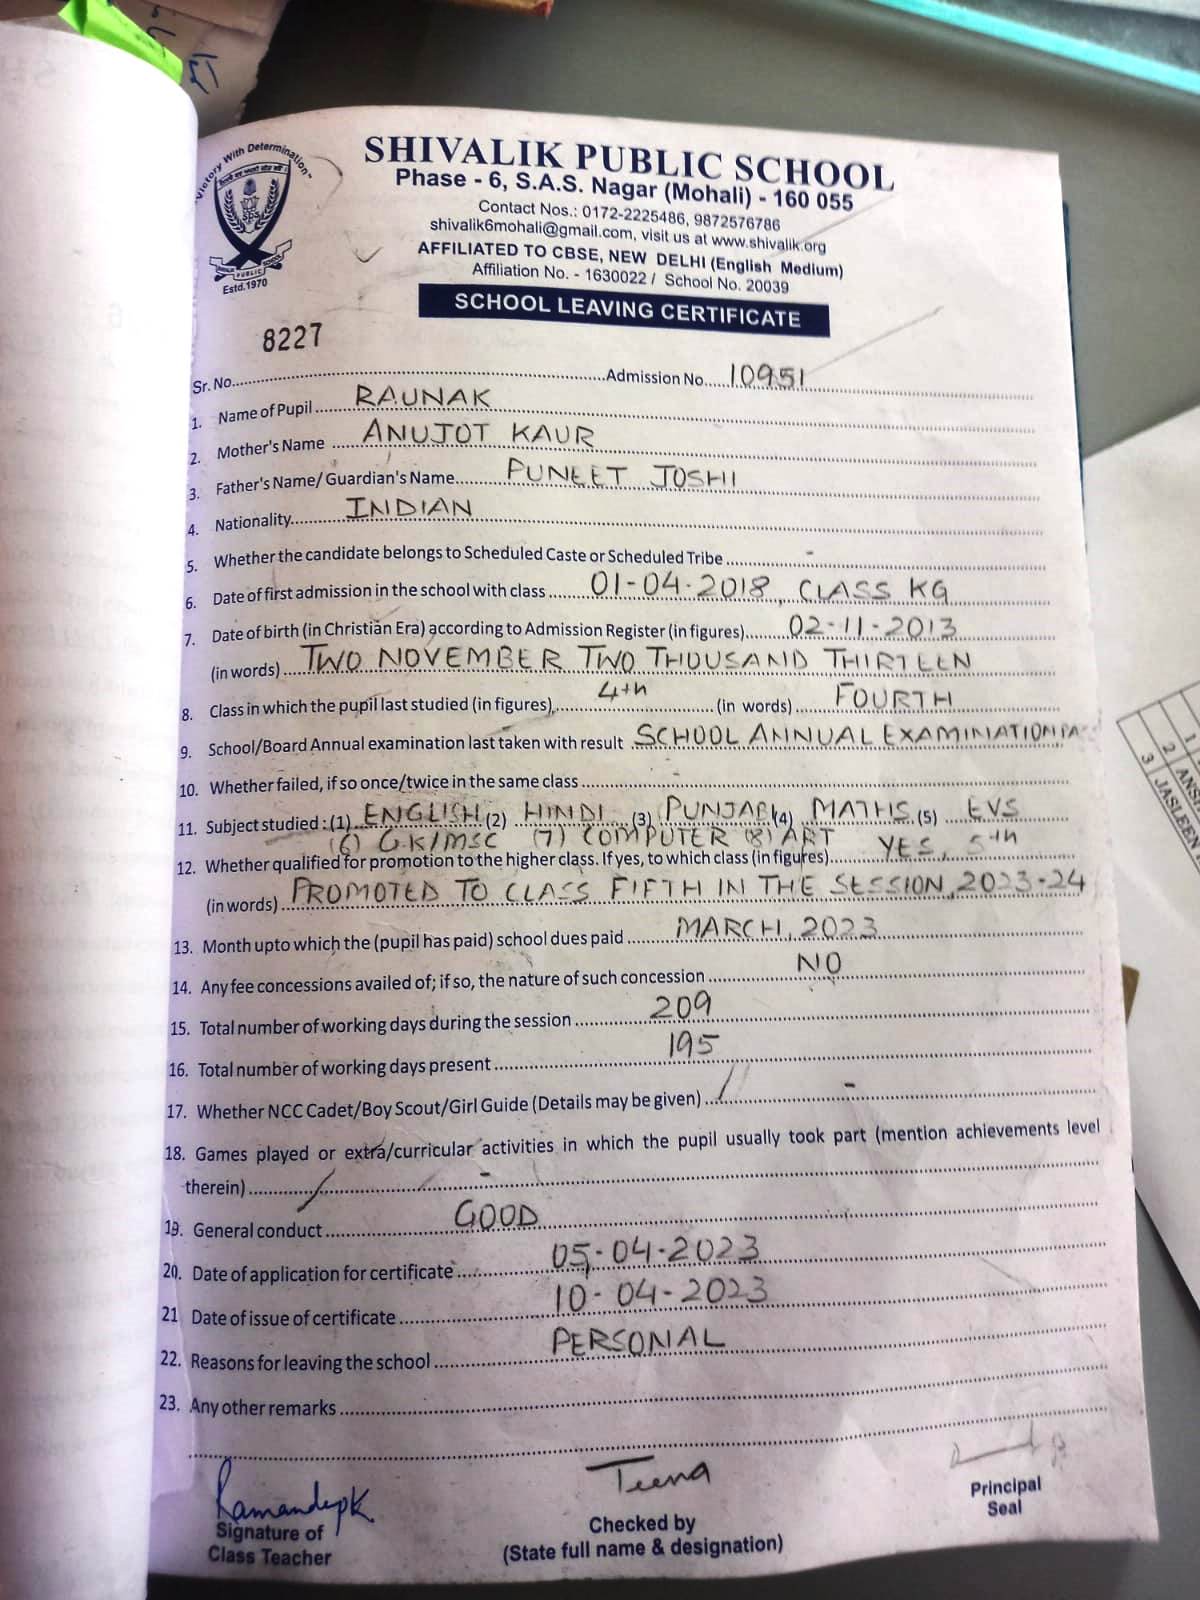 "Victory With Determination"
SPS
SHIVALIK PUBLIC SCHOOL
Estd.1970
SHIVALIK PUBLIC SCHOOL
Phase - 6, S.A.S. Nagar (Mohali) - 160 055
Contact Nos.: 0172-2225486, 9872576786
shivalik6mohali@gmail.com, visit us at www.shivalik.org
AFFILIATED TO CBSE, NEW DELHI (English Medium)
Affiliation No. - 1630022 / School No. 20039
SCHOOL LEAVING CERTIFICATE
8227
Sr. No. Admission No. 10951
1. Name of Pupil RAUNAK
2. Mother's Name ANUJOT KAUR
3. Father's Name/ Guardian's Name PUNEET JOSHI
4. Nationality INDIAN
5. Whether the candidate belongs to Scheduled Caste or Scheduled Tribe -
6. Date of first admission in the school with class 01-04-2018, CLASS KG
7. Date of birth (in Christian Era) according to Admission Register (in figures) 02-11-2013
(in words) TWO NOVEMBER TWO THOUSAND THIRTEEN
8. Class in which the pupil last studied (in figures) 4th (in words) FOURTH
9. School/Board Annual examination last taken with result SCHOOL ANNUAL EXAMINATION PA
10. Whether failed, if so once/twice in the same class -
11. Subject studied : (1) ENGLISH (2) HINDI (3) PUNJABI (4) MATHS (5) EVS
(6) G.K/MSC (7) COMPUTER (8) ART
12. Whether qualified for promotion to the higher class. If yes, to which class (in figures) YES, 5th
(in words) PROMOTED TO CLASS FIFTH IN THE SESSION, 2023-24
13. Month upto which the (pupil has paid) school dues paid MARCH, 2023
14. Any fee concessions availed of; if so, the nature of such concession NO
15. Total number of working days during the session 209
16. Total number of working days present 195
17. Whether NCC Cadet/Boy Scout/Girl Guide (Details may be given) -
18. Games played or extra/curricular activities in which the pupil usually took part (mention achievements level
therein) -
19. General conduct GOOD
20. Date of application for certificate 05-04-2023
21 Date of issue of certificate 10-04-2023
22. Reasons for leaving the school PERSONAL
23. Any other remarks
RamandepK
Teena
Signature of
Class Teacher
Checked by
(State full name & designation)
Principal
Seal
1
2 ANS
3 JASLEEN